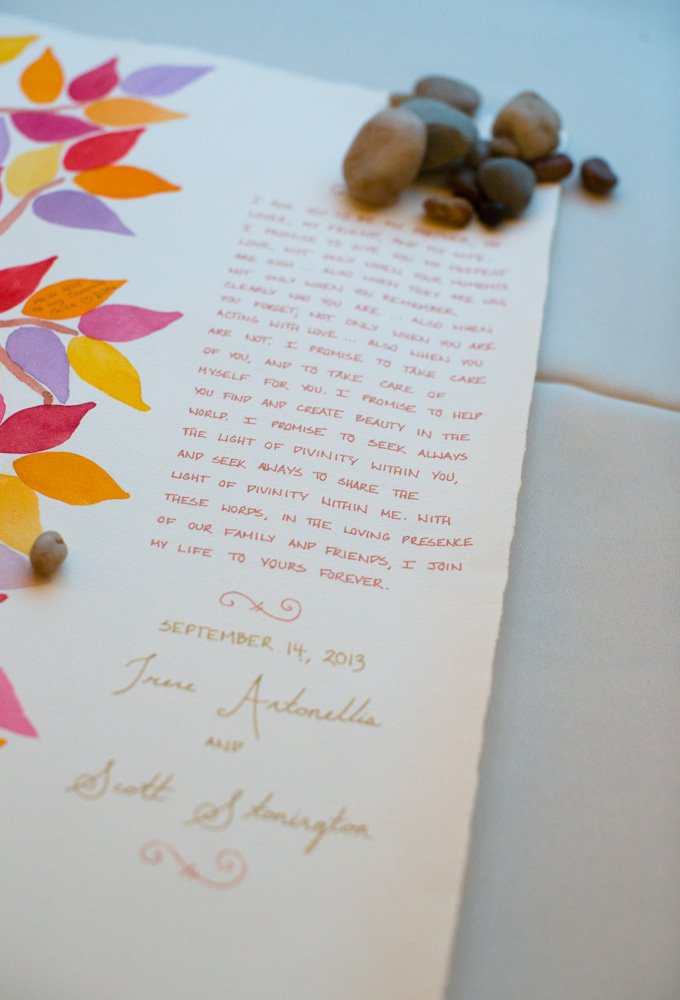 I ASK YOU TO BE MY
LOVER, MY FRIEND AND MY WIFE.
I PROMISE TO GIVE YOU MY DEEPEST
LOVE, NOT ONLY WHEN YOUR MOMENTS
ARE HIGH ... ALSO WHEN THEY ARE LOW;
NOT ONLY WHEN YOU REMEMBER
CLEARLY WHO YOU ARE ... ALSO WHEN
YOU FORGET; NOT ONLY WHEN YOU ARE
ACTING WITH LOVE ... ALSO WHEN YOU
ARE NOT. I PROMISE TO TAKE CARE
OF YOU, AND TO TAKE CARE OF
MYSELF FOR YOU. I PROMISE TO HELP
YOU FIND AND CREATE BEAUTY IN THE
WORLD. I PROMISE TO SEEK ALWAYS
THE LIGHT OF DIVINITY WITHIN YOU,
AND SEEK ALWAYS TO SHARE THE
LIGHT OF DIVINITY WITHIN ME. WITH
THESE WORDS, IN THE LOVING PRESENCE
OF OUR FAMILY AND FRIENDS, I JOIN
MY LIFE TO YOURS FOREVER.
SEPTEMBER 14, 2013
Irene Antonellis
AND
Scott Stonington